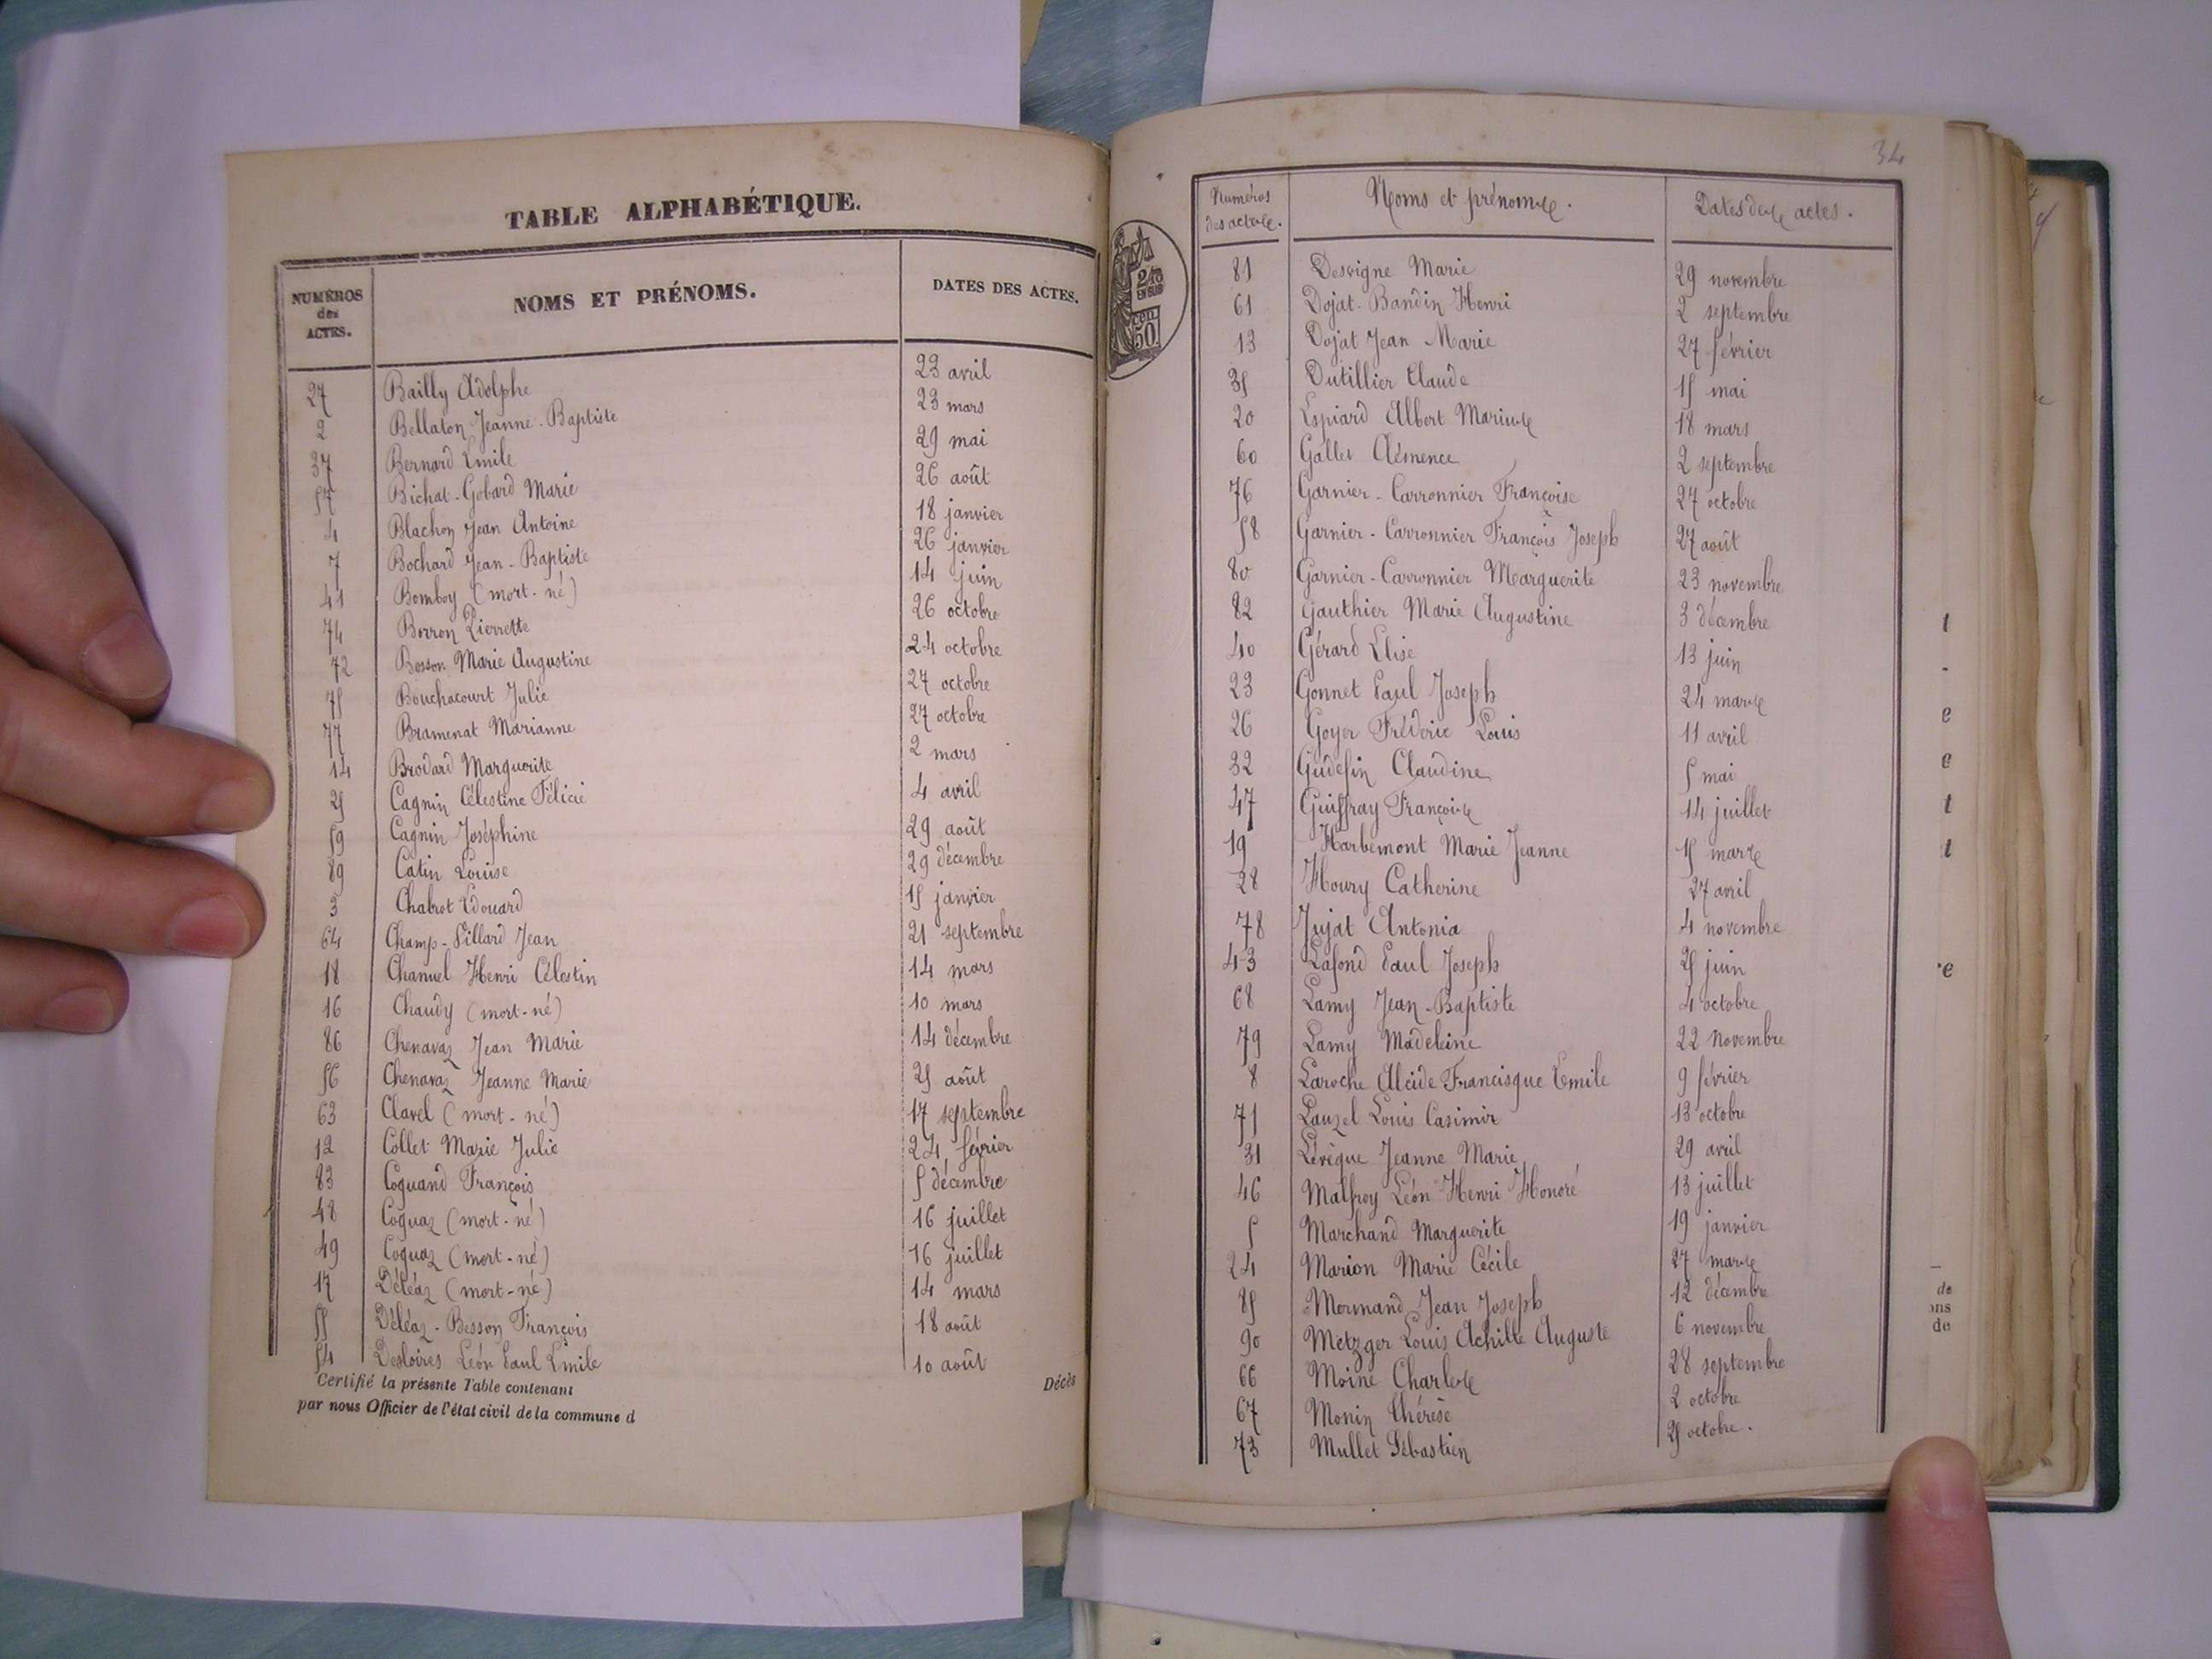 TABLE ALPHABÉTIQUE.
NUMÉROS des ACTES. NOMS ET PRÉNOMS. DATES DES ACTES.
27 Bailly Adolphe 23 avril
2 Bellaton Jeanne-Baptiste 23 mars
37 Bernard Emile 29 mai
57 Bichat-Gobard Marie 26 août
4 Blachon Jean Antoine 18 janvier
7 Bochard Jean-Baptiste 26 janvier
41 Bomboy (mort-né) 14 juin
74 Borron Pierrette 26 octobre
72 Bosson Marie Augustine 24 octobre
75 Bouchacourt Julie 27 octobre
77 Bramenat Marianne 27 octobre
14 Brodard Marguerite 2 mars
25 Cagnin Célestine Félicie 4 avril
59 Cagnin Joséphine 29 août
89 Catin Louise 29 décembre
3 Chabrot Edouard 15 janvier
64 Champ-Villard Jean 21 septembre
18 Chanuel Henri Célestin 14 mars
16 Chaudy (mort-né) 10 mars
86 Chenavaz Jean Marie 14 décembre
56 Chenavaz Jeanne Marie 25 août
63 Clavel (mort-né) 17 septembre
12 Collet Marie Julie 24 février
83 Coquand François 5 décembre
48 Coquaz (mort-né) 16 juillet
49 Coquaz (mort-né) 16 juillet
17 Déléaz (mort-né) 14 mars
55 Déléaz-Besson François 18 août
54 Desloires Léon Paul Emile 10 août
Certifié la présente Table contenant Décès
par nous Officier de l'état civil de la commune d
34
2/10 EN SUS
50 CEN.
Numéros des actes. Noms et prénoms. Dates des actes.
81 Desvigne Marie 29 novembre
61 Dojat-Bandin Henri 2 septembre
13 Dojat Jean Marie 27 février
35 Dutillier Claude 15 mai
20 Espiard Albert Marius 18 mars
60 Gallet Clémence 2 septembre
76 Garnier-Carronnier Françoise 27 octobre
58 Garnier-Carronnier François Joseph 27 août
80 Garnier-Carronnier Marguerite 23 novembre
82 Gauthier Marie Augustine 3 décembre
40 Gérard Elise 13 juin
23 Gonnet Paul Joseph 24 mars
26 Goyer Frédéric Louis 11 avril
32 Gudefin Claudine 5 mai
47 Guiffray François 14 juillet
19 Harbemont Marie Jeanne 15 mars
28 Houry Catherine 27 avril
78 Jujat Antonia 4 novembre
43 Lafond Paul Joseph 25 juin
68 Lamy Jean-Baptiste 4 octobre
79 Lamy Madeleine 22 novembre
8 Laroche Alcide Francisque Emile 9 février
71 Lauzel Louis Casimir 13 octobre
31 Lévêque Jeanne Marie 29 avril
46 Malfroy Léon Henri Honoré 13 juillet
5 Marchand Marguerite 19 janvier
24 Marion Marie Cécile 27 mars
85 Mermand Jean Joseph 12 décembre
90 Metzger Louis Achille Auguste 6 novembre
66 Moine Charles 28 septembre
67 Monin Thérèse 2 octobre
73 Mullet Sébastien 25 octobre.
de
ons
de